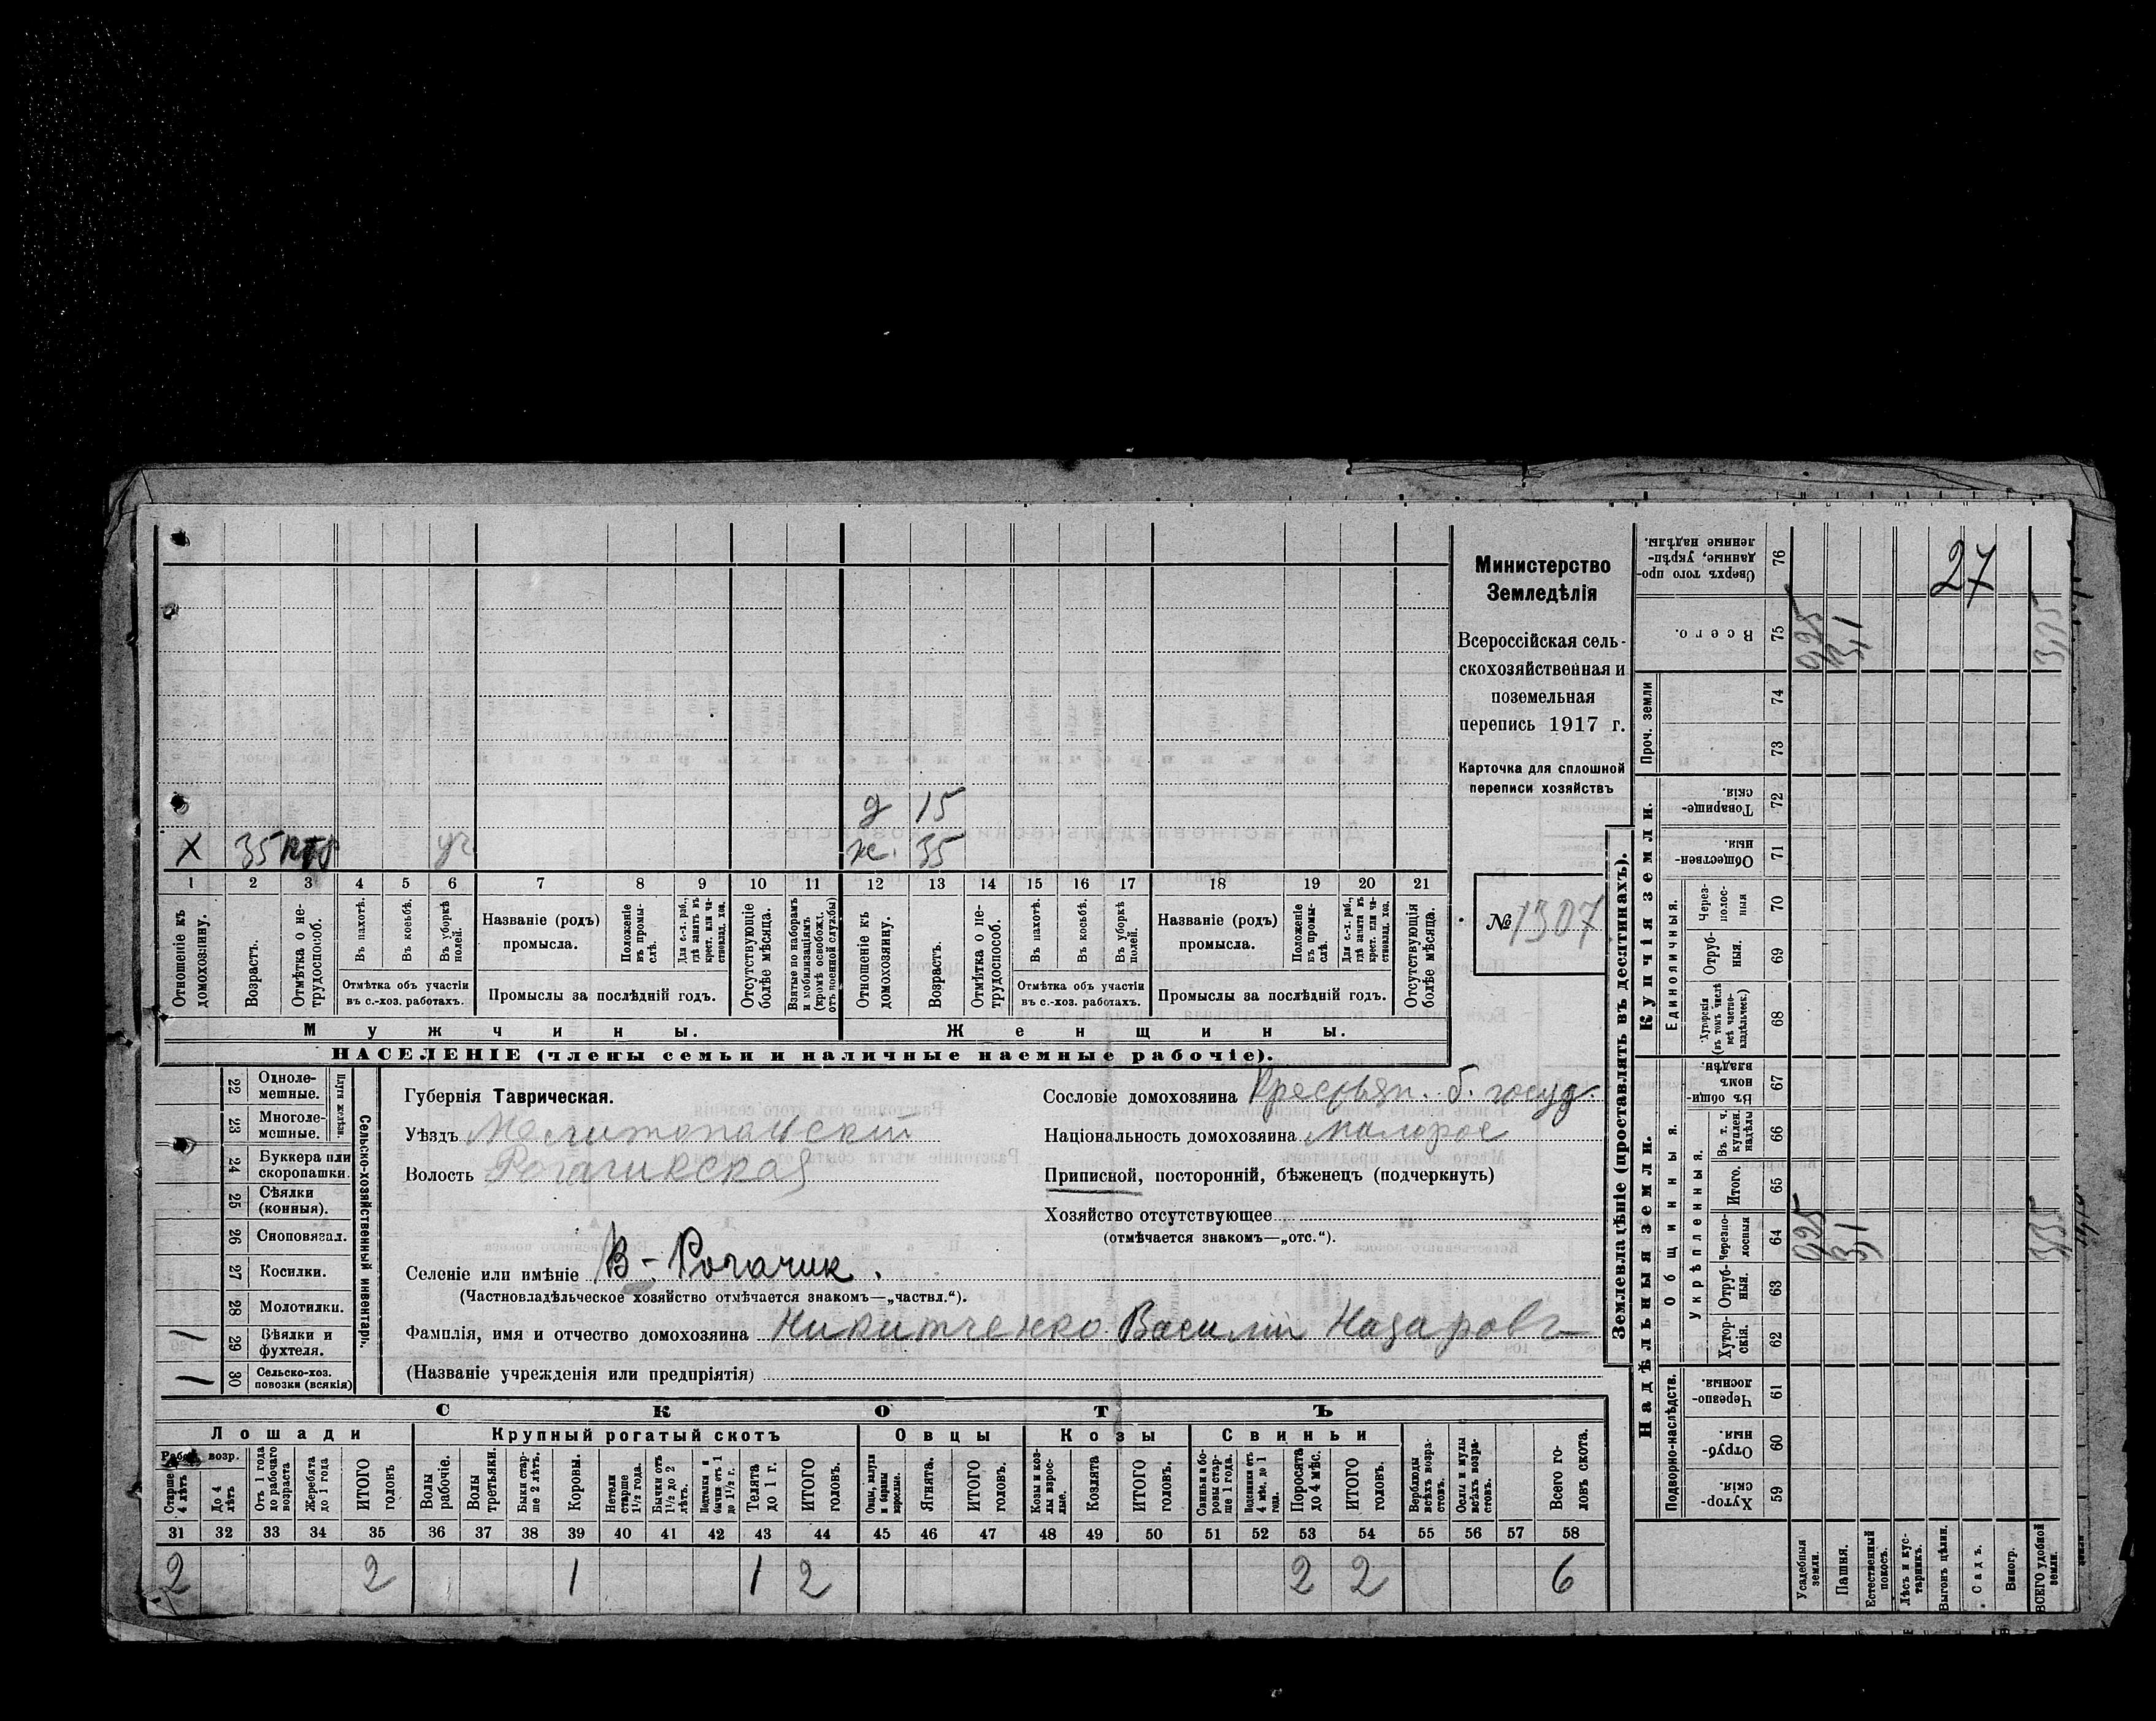 Министерство
Земледѣлія
Всероссійская сель-
скохозяйственная и
поземельная
перепись 1917 г.
Карточка для сплошной
переписи хозяйствъ
№ 1307
27
д 15
х 35 ж. 35
1 2 3 4 5 6 7 8 9 10 11 12 13 14 15 16 17 18 19 20 21
Отношеніе къ домохозяину.
Возрастъ.
Отмѣтка о не-трудоспособ.
Въ пахотѣ.
Въ косьбѣ.
Въ уборкѣ полей.
Отмѣтка объ участіи въ с.-хоз. работахъ.
Названіе (родъ) промысла.
Положеніе въ промы-слѣ.
Для с.-х. раб., гдѣ занятъ въ крест. или ча-стновлад. хоз.
Промыслы за послѣдній годъ.
Отсутствующіе болѣе мѣсяца.
Взятые по наборамъ и мобилизаціямъ (кромѣ освобожд. отъ военной службы)
Отношеніе къ домохозяину.
Возрастъ.
Отмѣтка о не-трудоспособ.
Въ пахотѣ.
Въ косьбѣ.
Въ уборкѣ полей.
Отмѣтка объ участіи въ с.-хоз. работахъ.
Названіе (родъ) промысла.
Положеніе въ промы-слѣ.
Для с.-х. раб., гдѣ занята въ крест. или ча-стновлад. хоз.
Промыслы за послѣдній годъ.
Отсутствующія болѣе мѣсяца.
Мужчины. Женщины.
НАСЕЛЕНІЕ (члены семьи и наличные наемные рабочіе).
22 Одноле-мешные.
23 Многоле-мешные.
24 Буккера или скоропашки.
25 Сѣялки (конныя).
26 Сноповязал.
27 Косилки.
28 Молотилки.
29 Вѣялки и фухтеля. 1
30 Сельско-хоз. повозки (всякія) 1
Сельско-хозяйственный инвентарь.
Губернія Таврическая.
Уѣздъ Мелитопольскій
Волость Рогачикская
Сословіе домохозяина Крестьян. б. госуд.
Національность домохозяина малорос
Приписной, посторонній, бѣженецъ (подчеркнуть)
Хозяйство отсутствующее
(отмѣчается знакомъ—„отс.“).
Селеніе или имѣніе В-Рогачик.
(Частновладѣльческое хозяйство отмѣчается знакомъ—„частвл.“).
Фамилія, имя и отчество домохозяина Никитченко Василій Назаров
(Названіе учрежденія или предпріятія)
СКОТЪ
Лошади Крупный рогатый скотъ Овцы Козы Свиньи
Рабоч. возр.
Старше 4 лѣтъ
До 4 лѣтъ
Отъ 1 года до рабочаго возраста
Жеребята до 1 года
ИТОГО головъ
Волы рабочіе.
Волы третьяки.
Быки стар-ше 2 лѣтъ.
Коровы.
Нетели старше 1½ года.
Бычки отъ 1½ до 2 лѣтъ.
Телята до 1 г.
ИТОГО головъ.
Ягнята.
ИТОГО головъ.
Козы и коз-лы взрос-лые.
Козлята
ИТОГО головъ.
Свиньи и бо-ровы стар-ше 1 года.
Поросята до 4 мѣс.
ИТОГО головъ.
Верблюды всѣхъ возра-стовъ.
Ослы и мулы всѣхъ возра-стовъ.
Всего го-ловъ скота.
31 32 33 34 35 36 37 38 39 40 41 42 43 44 45 46 47 48 49 50 51 52 53 54 55 56 57 58
2 2 1 1 2 2 2 6
Землевладѣніе (проставлять въ десятинахъ).
Надѣльныя земли. Купчія земли. Проч. земли
Подворно-наслѣдств.
Общинныя.
Укрѣпленныя.
Единоличныя.
59 Хутор-скія.
60 Отруб-ныя.
61 Черезпо-лосныя.
62 Хутор-скія.
63 Отруб-ныя.
64 Черезпо-лосныя
65 Итого.
66 Въ т. ч. куплен. надѣлы
67 Въ общин-номъ владѣн.
68 Хуторскія (въ томъ числѣ всѣ частно-владѣльческ.)
69 Отруб-ныя.
70 Через-полос-ныя
71 Обществен-ныя.
72 Товарище-скія.
73
74
75 Всего.
76 Сверхъ того про-данные, укрѣп-ленные надѣлы.
Усадебныя земли.
Пашня.
Естественный покосъ.
Лѣсъ и кус-тарникъ.
Выгонъ цѣлин.
Садъ.
Виногр.
ВСЕГО удобной земли.
0,25 0,25
3,1 3,1